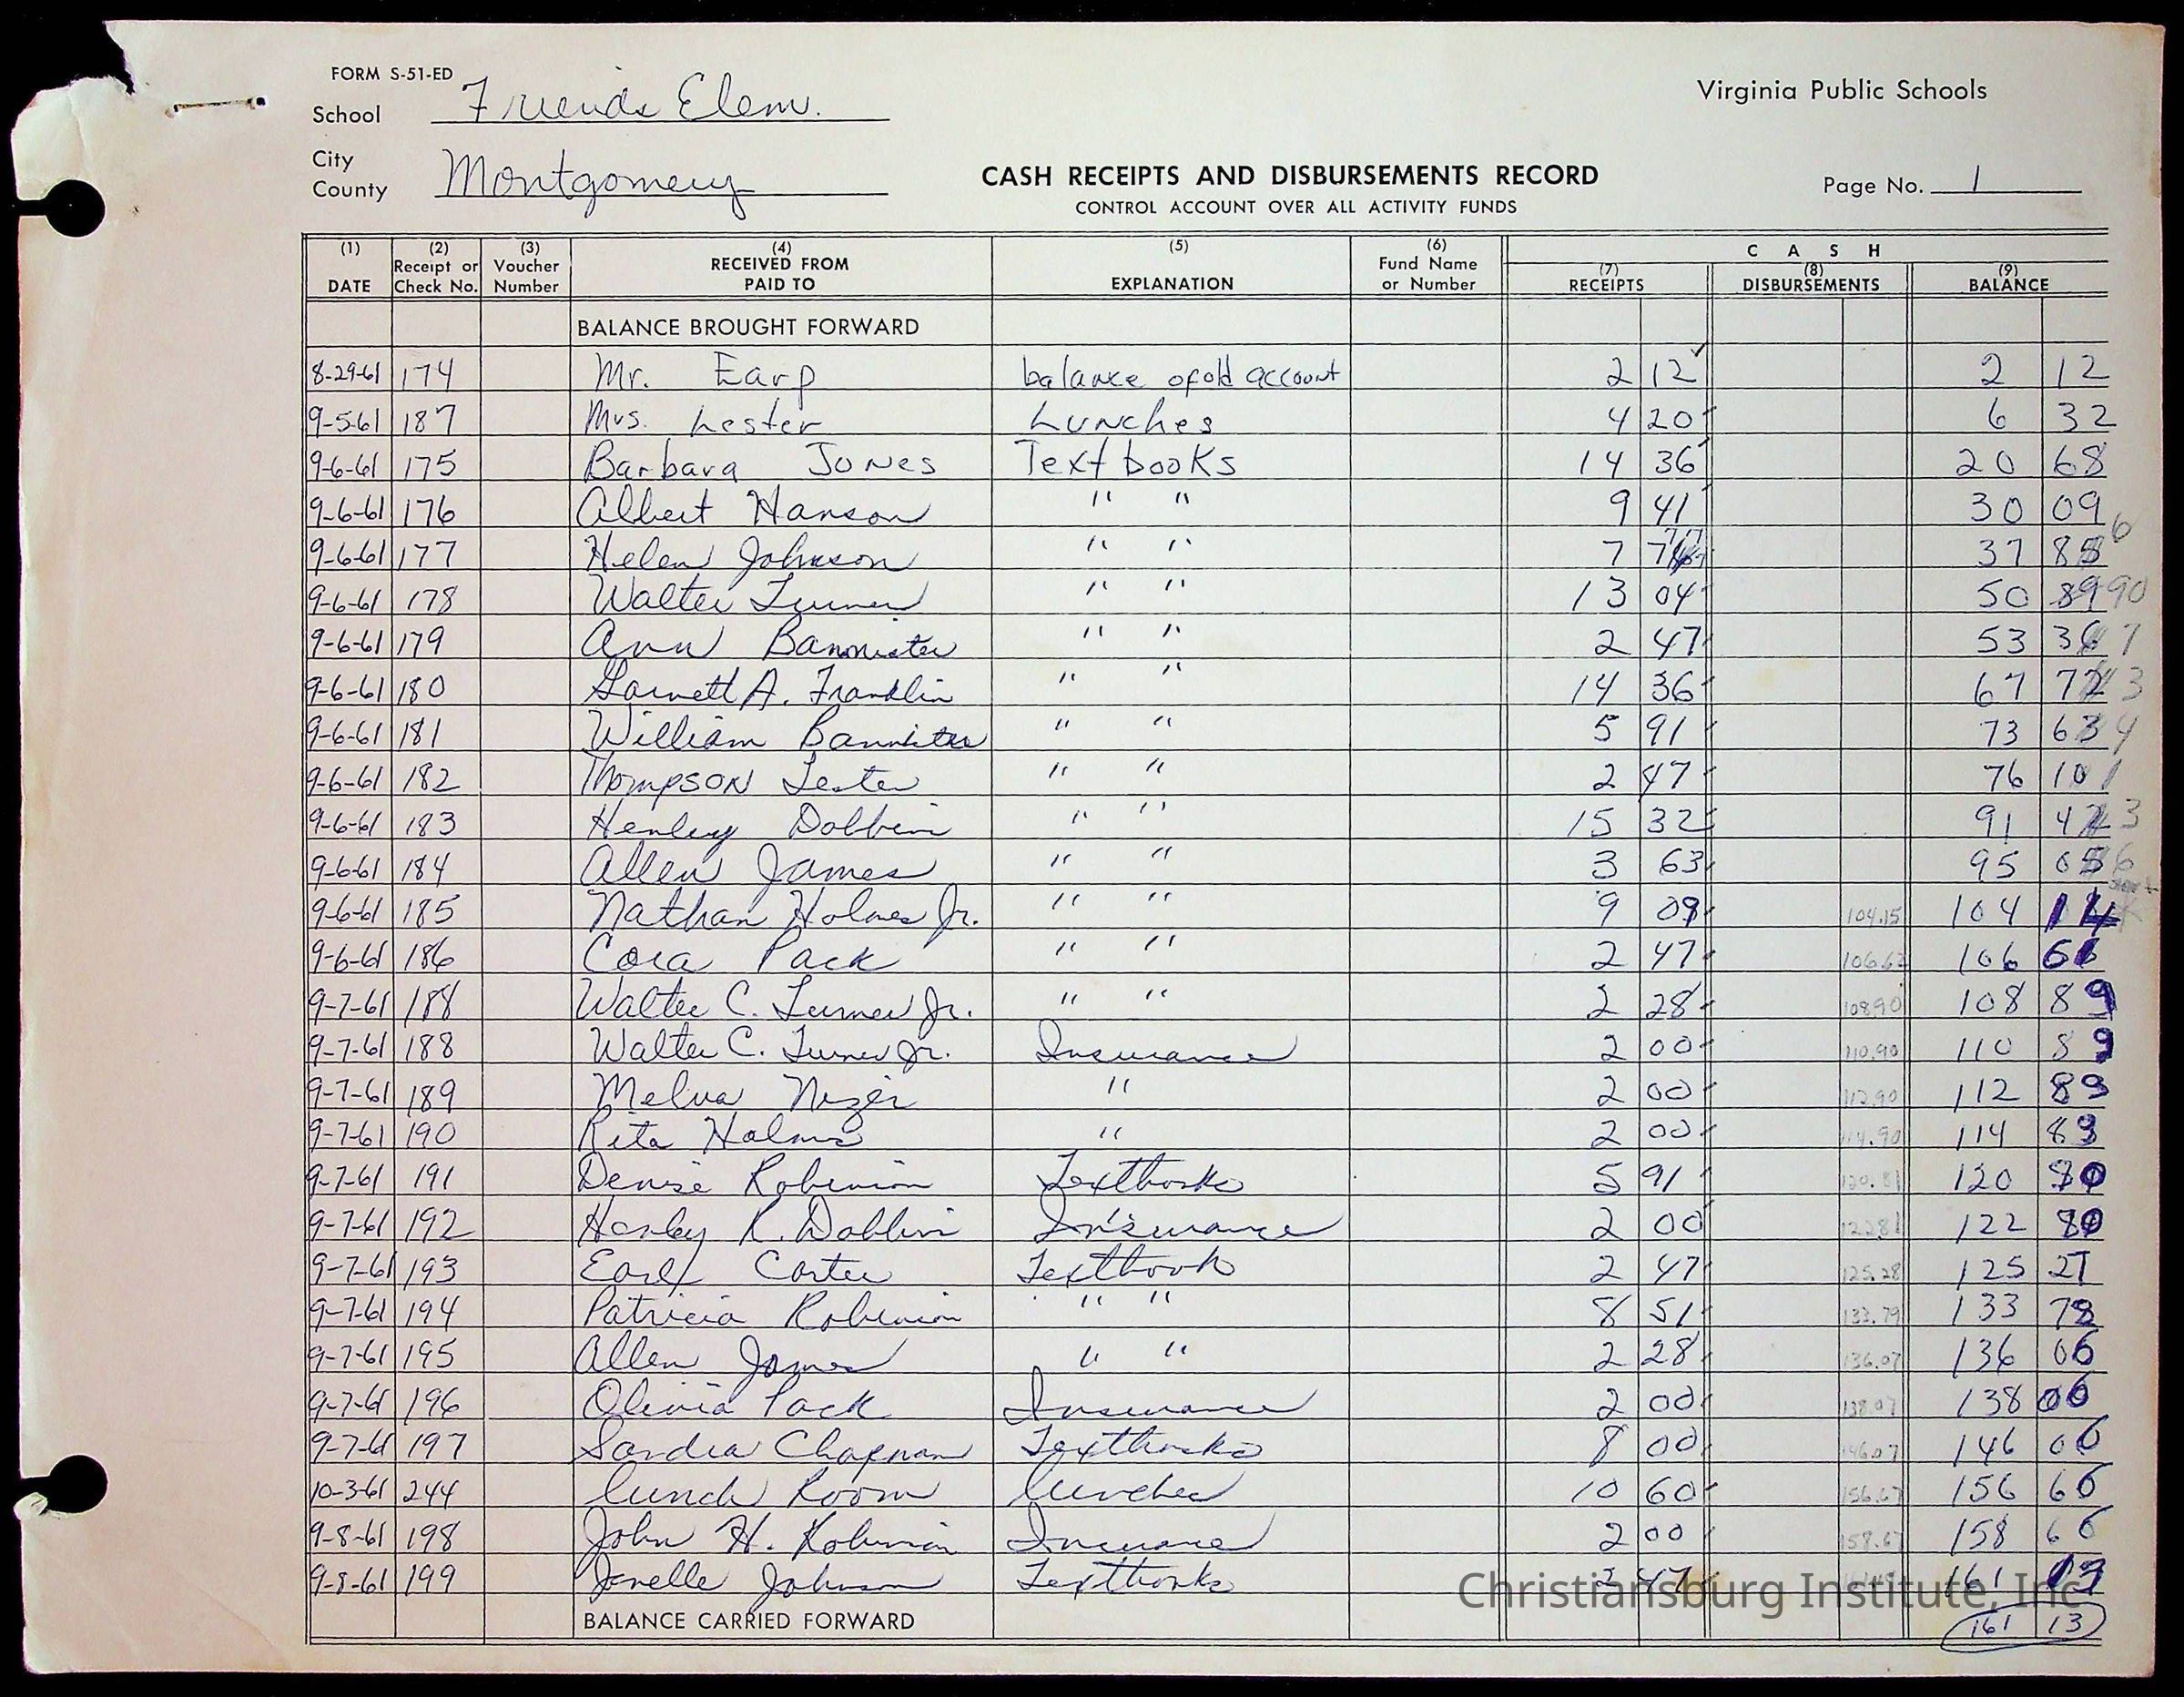 FORM S-51-ED
School Friends Elem.
Virginia Public Schools
City
County Montgomery
CASH RECEIPTS AND DISBURSEMENTS RECORD
CONTROL ACCOUNT OVER ALL ACTIVITY FUNDS
Page No. 1
(1) DATE (2) Receipt or Check No. (3) Voucher Number (4) RECEIVED FROM PAID TO (5) EXPLANATION (6) Fund Name or Number CASH (7) RECEIPTS (8) DISBURSEMENTS (9) BALANCE
BALANCE BROUGHT FORWARD
8-29-61 174 Mr. Earp balance of old account 2 12 2 12
9-5-61 187 Mrs. Lester Lunches 4 20 6 32
9-6-61 175 Barbara Jones Textbooks 14 36 20 68
9-6-61 176 Albert Hanson " " 9 41 30 09
9-6-61 177 Helen Johnson " " 7 37 85 6
9-6-61 178 Walter Turner " " 13 04 50 89 90
9-6-61 179 Ann Bannister " " 2 47 53 36 7
9-6-61 180 Garnett A. Franklin " " 14 36 67 72 3
9-6-61 181 William Bannister " " 5 91 73 63 4
9-6-61 182 Thompson Lester " " 2 47 76 10 1
9-6-61 183 Henley Dobbin " " 15 32 91 42 3
9-6-61 184 Allen James " " 3 63 95 05 6
9-6-61 185 Nathan Holmes Jr. " " 9 09 104.15 104 14
9-6-61 186 Cora Pack " " 2 47 106.62 106 61
9-7-61 188 Walter C. Turner Jr. " " 2 28 108.90 108 89
9-7-61 188 Walter C. Turner Jr. Insurance 2 00 110.90 110 89
9-7-61 189 Melva " 2 00 112.90 112 89
9-7-61 190 Rita Holmes " 2 00 114.90 114 89
9-7-61 191 Denise Robinson Textbooks 5 91 120.81 120 80
9-7-61 192 Henley R. Dobbin Insurance 2 00 122.81 122 80
9-7-61 193 Earl Carter Textbook 2 47 125.28 125 27
9-7-61 194 Patricia Robinson " " 8 51 133.79 133 78
9-7-61 195 Allen James " " 2 28 136.07 136 06
9-7-61 196 Olivia Pack Insurance 2 00 138.07 138 06
9-7-61 197 Sandra Chapman Textbooks 8 00 146.07 146 06
10-3-61 244 Lunch Room Lunches 10 60 156.67 156 66
9-8-61 198 John H. Robinson Insurance 2 00 158.67 158 66
9-8-61 199 Janelle Johnson Textbooks 2 47 161 13
Christiansburg Institute, Inc.
BALANCE CARRIED FORWARD 161 13